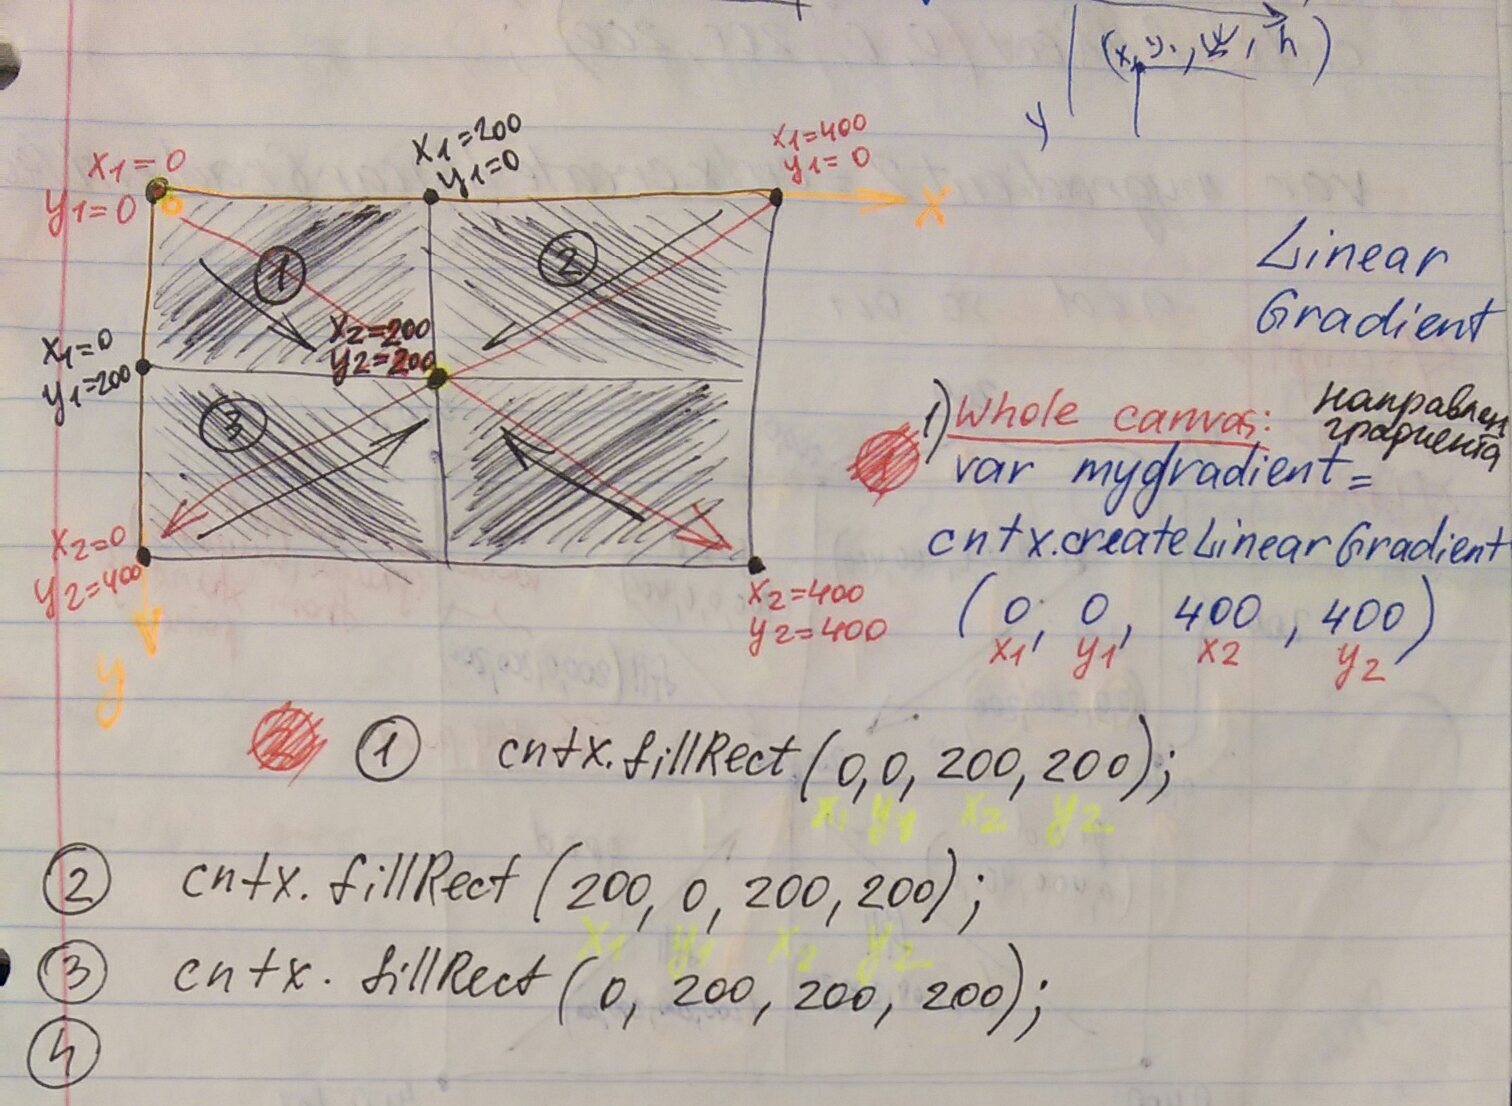 (x, y, w, h)
y
x1=0
y1=0
x1=200
y1=0
x1=400
y1=0
x
1
2
x2=200
y2=200
x1=0
y1=200
3
x2=0
y2=400
y
x2=400
y2=400
Linear
Gradient
1) Whole canvas:
направлен
градиента
1
var mygradient=
cntx.createLinearGradient
(0, 0, 400, 400)
x1 y1 x2 y2
2 1 cntx.fillRect(0,0,200,200);
x1 y1 x2 y2
2 cntx.fillRect(200,0,200,200);
x1 y1 x2 y2
3 cntx.fillRect(0,200,200,200);
4